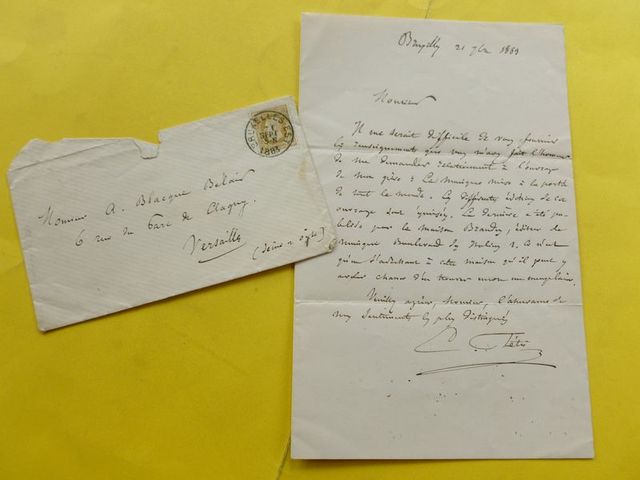 Monsieur A. Blacque Belair
6 rue du Parc de Clagny
Versailles
(Seine et Oise)
BRUXELLES
21
SEPT
Bruxelles 21 7bre 1889
Monsieur
Il me serait difficile de vous fournir
les renseignements que vous m'avez fait l'honneur
de me demander relativement à l'ouvrage
de mon père : La musique mise à la portée
de tout le monde. Les différentes éditions de cet
ouvrage sont épuisées. La dernière a été pu-
bliée par la maison Brandus, éditeur de
musique Boulevard des Italiens 1. Ce n'est
qu'en s'adressant à cette maison qu'il peut y
avoir chance d'en trouver encore un exemplaire.
Veuillez agréer, Monsieur, l'assurance de
mes sentiments les plus distingués
Fétis